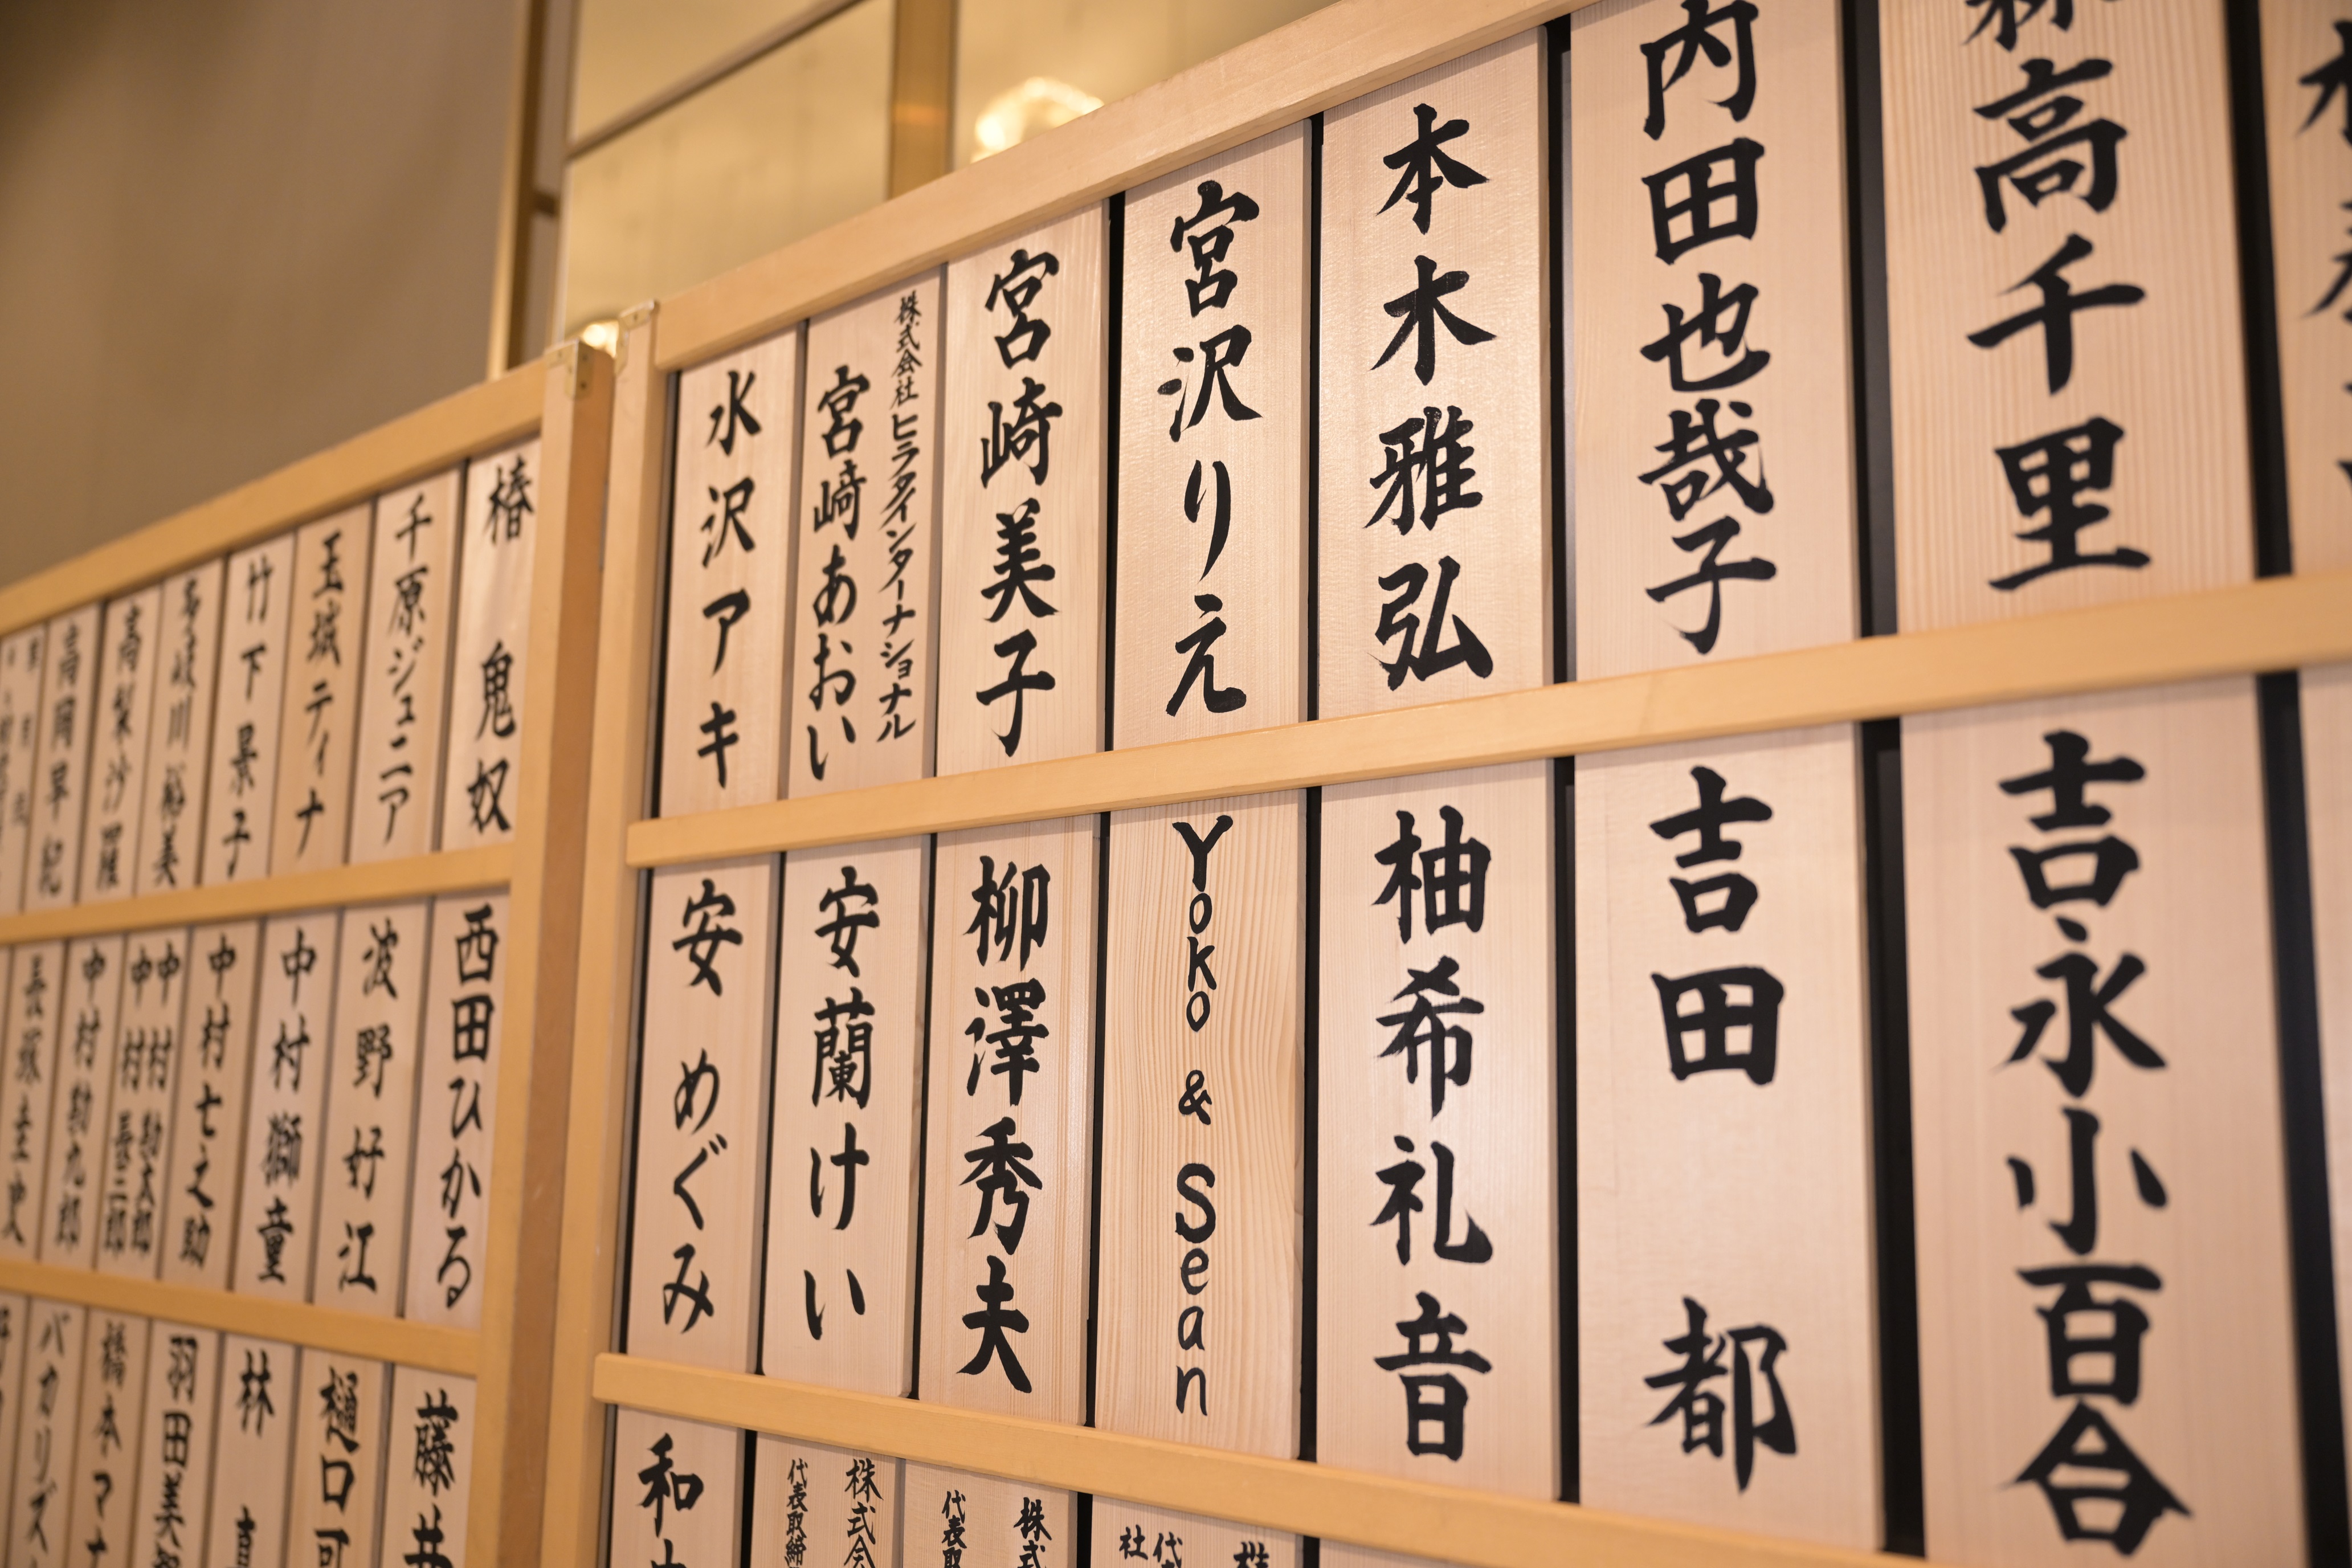 高千里
内田也哉子
本木雅弘
宮沢りえ
宮崎美子
株式会社ヒラタインターナショナル
宮﨑あおい
水沢アキ
吉永小百合
吉田 都
柚希礼音
Yoko & Sean
柳澤秀夫
安蘭けい
安 めぐみ
株式
代表取
株式会
代表取締
和
椿 鬼奴
千原ジュニア
玉城ティナ
竹下景子
多岐川裕美
高梨沙羅
高岡早紀
西田ひかる
波野好江
中村獅童
中村七之助
中村勘太郎
中村長三郎
中村勘九郎
長塚圭史
藤井
樋口可
林 真
羽田美智
橋本マナ
バカリズ